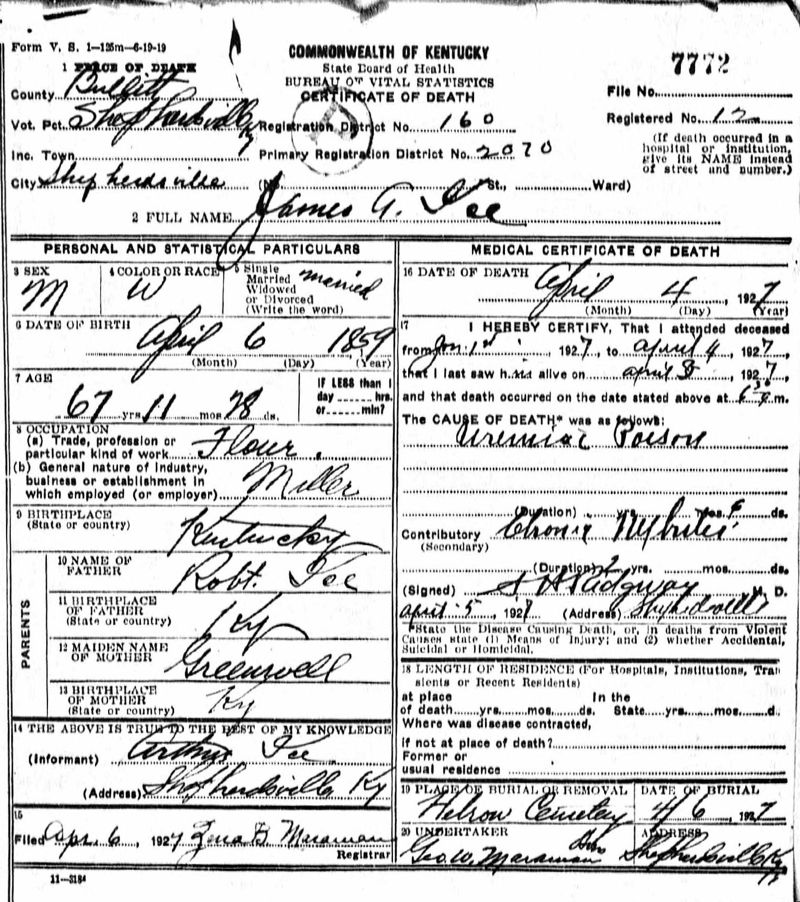 Form V. S. 1—125m—6-19-19
COMMONWEALTH OF KENTUCKY
State Board of Health
BUREAU OF VITAL STATISTICS
CERTIFICATE OF DEATH
7772
1 PLACE OF DEATH
County Bullitt
Vot. Pct. Shepherdsville Ky
Inc. Town
City Shepherdsville
Registration District No. 160
Primary Registration District No. 2070
(No. St., Ward)
File No.
Registered No. 12
(If death occurred in a
hospital or institution,
give its NAME instead
of street and number.)
2 FULL NAME James A.
PERSONAL AND STATISTICAL PARTICULARS
3 SEX
M
4 COLOR OR RACE
W
5 Single
Married
Widowed
or Divorced
(Write the word)
married
6 DATE OF BIRTH
April 6 1859
(Month) (Day) (Year)
7 AGE
67 yrs. 11 mos. 28 ds.
IF LESS than 1
day hrs.
or min?
8 OCCUPATION
(a) Trade, profession or
particular kind of work Flour.
(b) General nature of industry,
business or establishment in
which employed (or employer) Miller
9 BIRTHPLACE
(State or country) Kentucky
PARENTS
10 NAME OF
FATHER Robt.
11 BIRTHPLACE
OF FATHER
(State or country) Ky
12 MAIDEN NAME
OF MOTHER Greenwell
13 BIRTHPLACE
OF MOTHER
(State or country) Ky
14 THE ABOVE IS TRUE TO THE BEST OF MY KNOWLEDGE
(Informant)
(Address) Shepherdsville Ky
15
Filed Apr. 6, 1927 Zena B Maraman
Registrar
11—3184
MEDICAL CERTIFICATE OF DEATH
16 DATE OF DEATH
April 4, 1927
(Month) (Day) (Year)
17 I HEREBY CERTIFY, That I attended deceased
from Jan. 1st, 1927, to april 4, 1927,
that I last saw him alive on april, 1927,
and that death occurred on the date stated above at m.
The CAUSE OF DEATH* was as follows:
Uremiac Poison
(Duration) yrs. mos. ds.
Contributory Chronic
(Secondary)
(Duration) 2 yrs. mos. ds.
(Signed) Ridgway M. D.
april 5, 1927 (Address) Shepherdsville
*State the Disease Causing Death, or, in deaths from Violent
Causes state (1) Means of Injury; and (2) whether Accidental,
Suicidal or Homicidal.
18 LENGTH OF RESIDENCE (For Hospitals, Institutions, Tran
sients or Recent Residents)
at place In the
of death yrs. mos. ds. State yrs. mos. d.
Where was disease contracted,
if not at place of death?
Former or
usual residence
19 PLACE OF BURIAL OR REMOVAL
Cemetery
DATE OF BURIAL
4/6, 1927
20 UNDERTAKER
Geo. W. Maraman
ADDRESS
Shepherdsville Ky